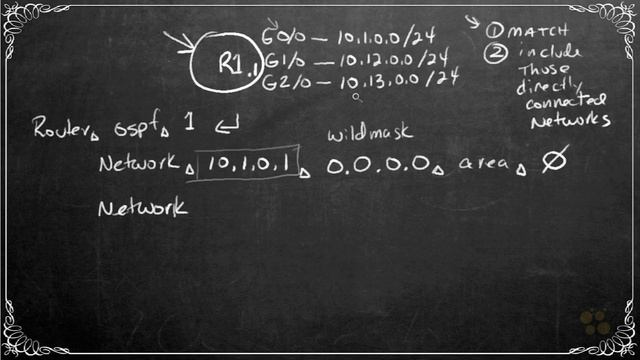 R1 .1
G0/0 — 10.1.0.0/24
G1/0 — 10.12.0.0/24
G2/0 — 10.13.0.0/24
① MATCH
② include
Those
directly
connected
Networks
Router ospf 1
wildmask
Network 10.1.0.1 0.0.0.0 area Ø
Network